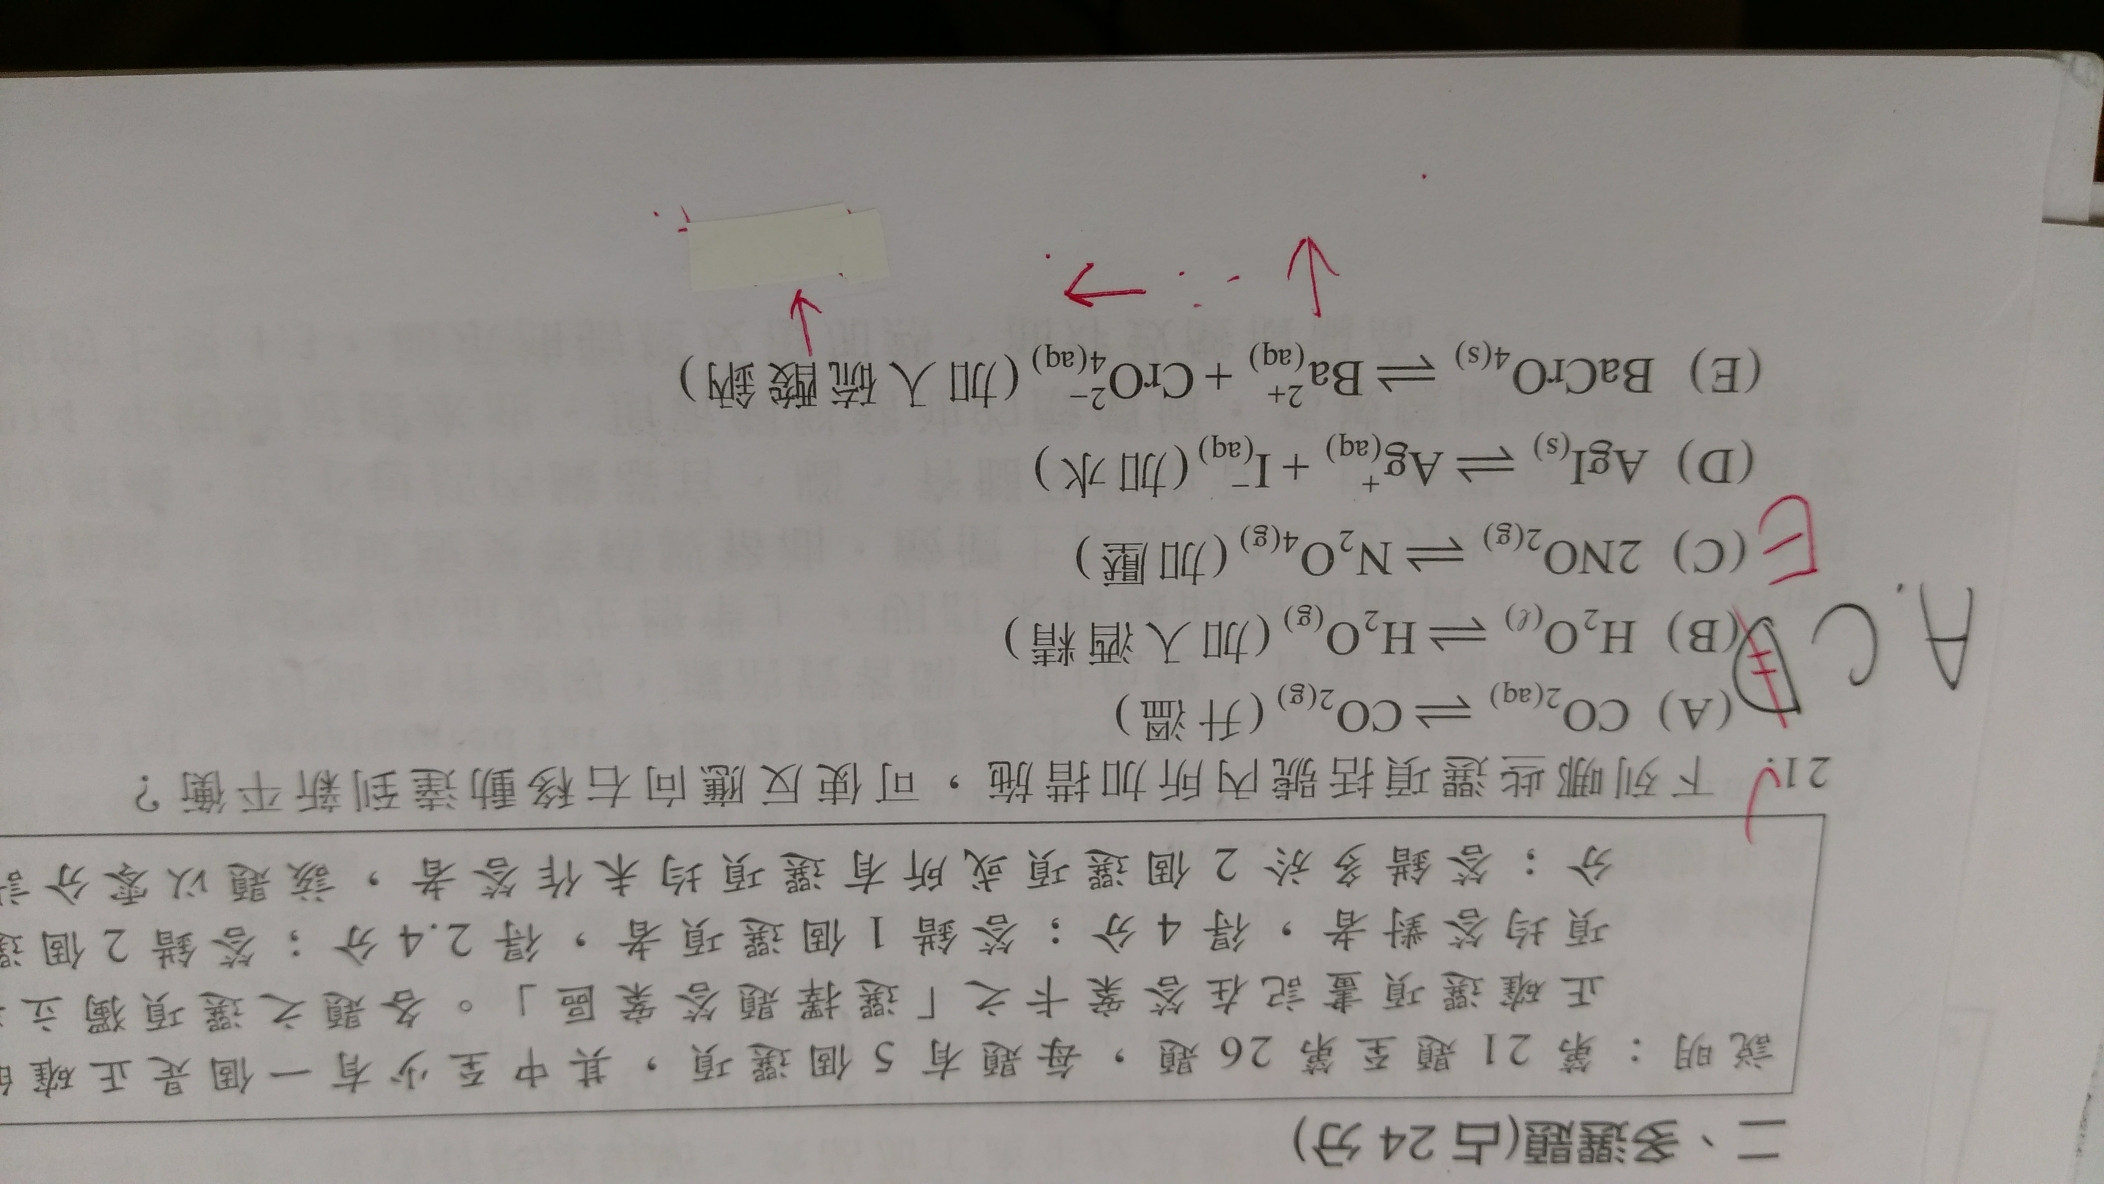 二、多選題(占24分)
說明：第21題至第26題，每題有5個選項，其中至少有一個是正確的
正確選項畫記在答案卡之「選擇題答案區」。各題之選項獨立
項均答對者，得4分；答錯1個選項者，得2.4分；答錯2個選
分；答錯多於2個選項或所有選項均未作答者，該題以零分計
21. 下列哪些選項括號內所加措施，可使反應向右移動達到新平衡？
(A) CO₂(aq) ⇌ CO₂(g) (升溫)
(B) H₂O(ℓ) ⇌ H₂O(g) (加入酒精)
(C) 2NO₂(g) ⇌ N₂O₄(g) (加壓)
(D) AgI(s) ⇌ Ag⁺(aq) + I⁻(aq) (加水)
(E) BaCrO₄(s) ⇌ Ba²⁺(aq) + CrO₄²⁻(aq) (加入硫酸鈉)
A. C D
E